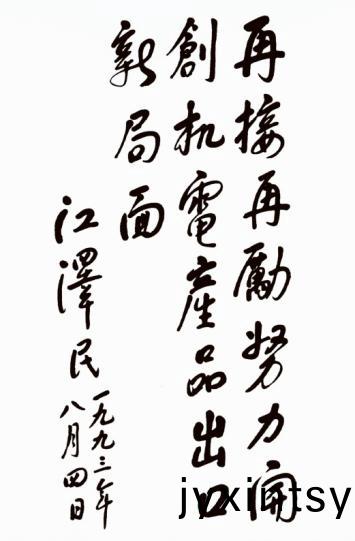 再接再勵努力開
創机電產品出口
新局面
江澤民
一九九三年
八月四日
jyxintsy